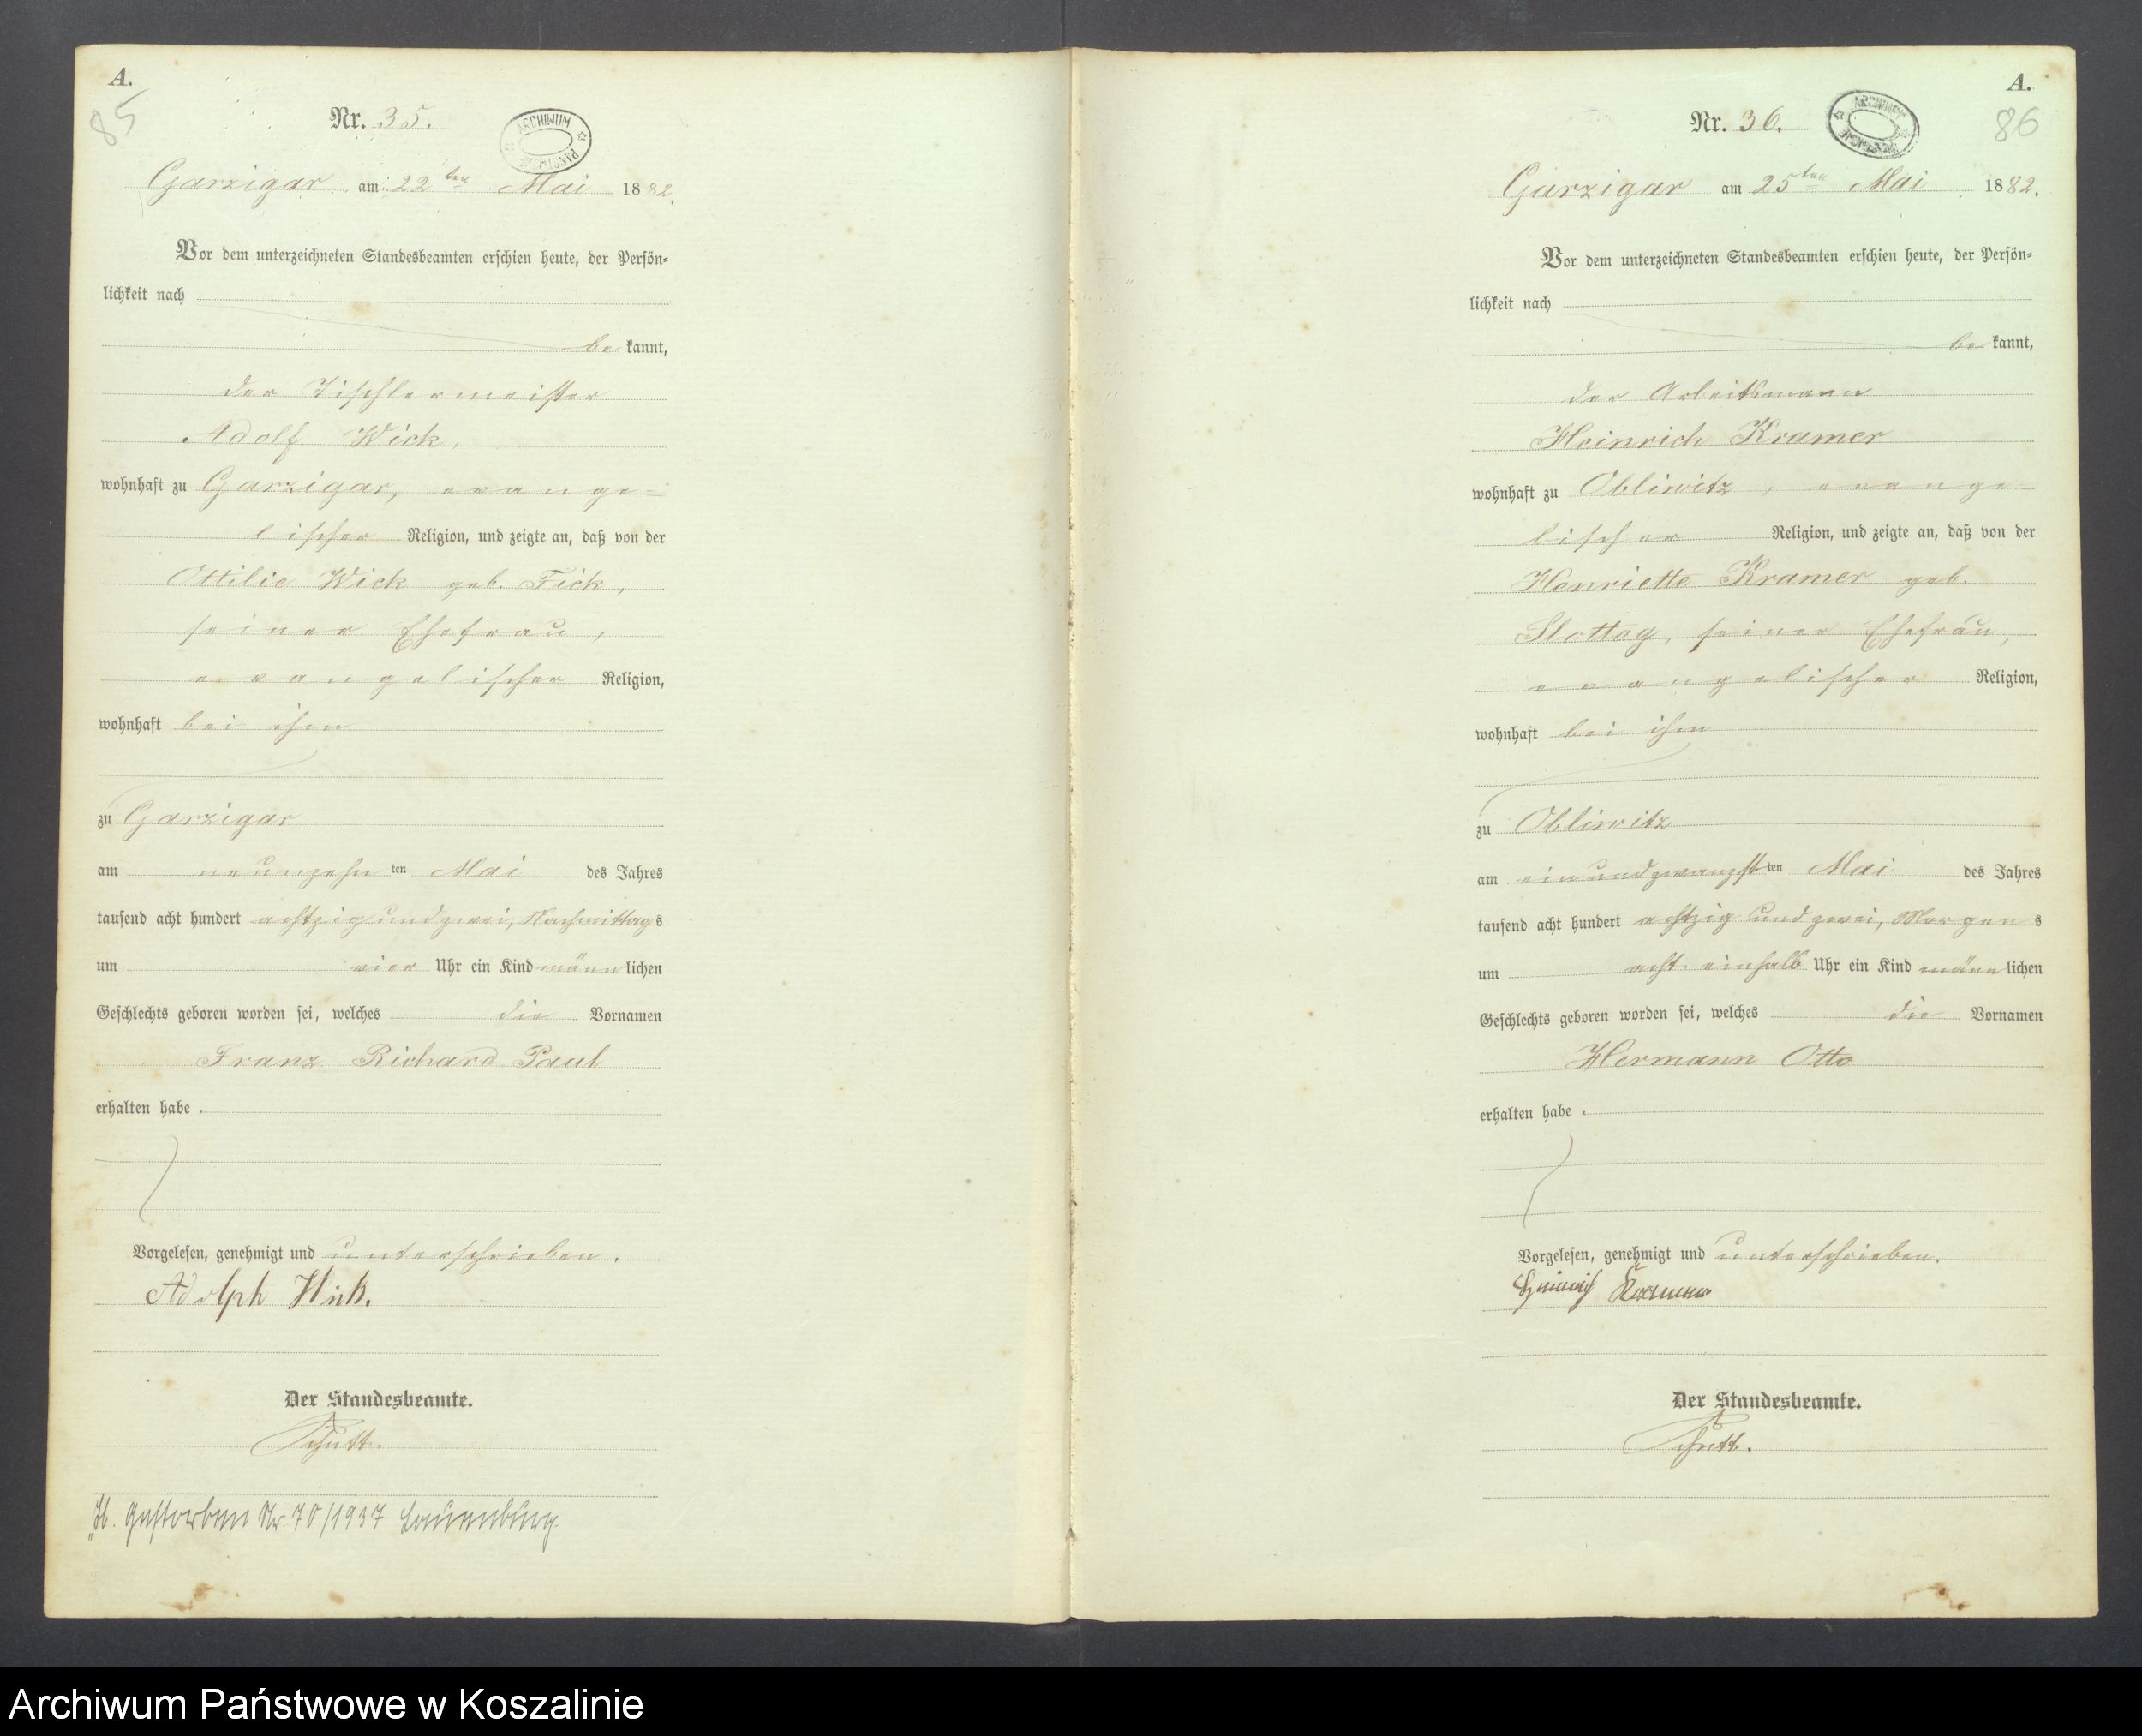 A.
85
Nr. 35.
ARCHIWUM PAŃSTWOWE
Garzigar am 22ten Mai 1882.
Vor dem unterzeichneten Standesbeamten erschien heute, der Persön-
lichkeit nach
bekannt,
der Tischlermeister
Adolf Wick,
wohnhaft zu Garzigar, evange-
lischer Religion, und zeigte an, daß von der
Ottilie Wick geb. Fick,
seiner Ehefrau,
evangelischer Religion,
wohnhaft bei ihm
zu Garzigar
am neunzehnten Mai des Jahres
tausend acht hundert achtzig und zwei, Nachmittags
um vier Uhr ein Kind männlichen
Geschlechts geboren worden sei, welches die Vornamen
Franz Richard Paul
erhalten habe.
Vorgelesen, genehmigt und unterschrieben.
Adolph Wick.
Der Standesbeamte.
Gestorben Nr. 70/1937 Lauenburg.
A.
86
Nr. 36.
ARCHIWUM PAŃSTWOWE
Garzigar am 25ten Mai 1882.
Vor dem unterzeichneten Standesbeamten erschien heute, der Persön-
lichkeit nach
bekannt,
der Arbeitsmann
Heinrich Kramer
wohnhaft zu Obliwitz, evange-
lischer Religion, und zeigte an, daß von der
Henriette Kramer geb.
seiner Ehefrau,
evangelischer Religion,
wohnhaft bei ihm
zu Obliwitz
am einundzwanzigsten Mai des Jahres
tausend acht hundert achtzig und zwei, Morgens
um acht einhalb Uhr ein Kind männlichen
Geschlechts geboren worden sei, welches die Vornamen
Hermann Otto
erhalten habe.
Vorgelesen, genehmigt und unterschrieben.
Heinrich Kramer
Der Standesbeamte.
Archiwum Państwowe w Koszalinie